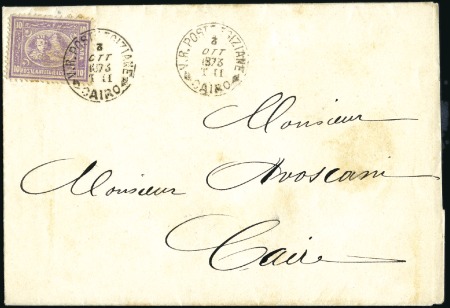 10 10
V.R. POSTE EGIZIANE
3
OTT
1873
T II
CAIRO
V.R. POSTE EGIZIANE
3
OTT
1873
T II
CAIRO
Monsieur
Monsieur Avoscani
Caire